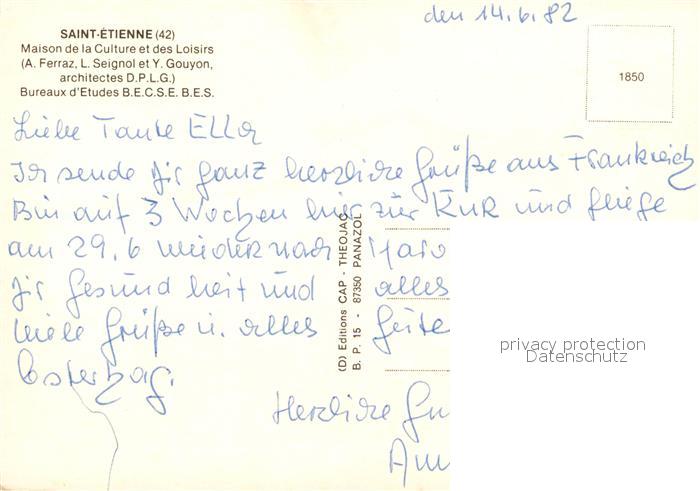 den 14.6.82
SAINT-ÉTIENNE (42)
Maison de la Culture et des Loisirs
(A. Ferraz, L. Seignol et Y. Gouyon,
architectes D.P.L.G.)
Bureaux d'Etudes B.E.C.S.E. B.E.S.
1850
Liebe Tante Ella
Ich sende Dir ganz herzliche Grüße aus Frankreich
Bin auf 3 Wochen hier zur Kur und fliege
am 29.6 wieder nach
Dir Gesundheit und alles
viele Grüße u. alles Gute
Herzliche
(D) Editions CAP - THEOJAC
B. P. 15 - 87350 PANAZOL
privacy protection
Datenschutz